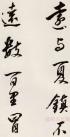 遠與夏鎮不
遠數百里冒